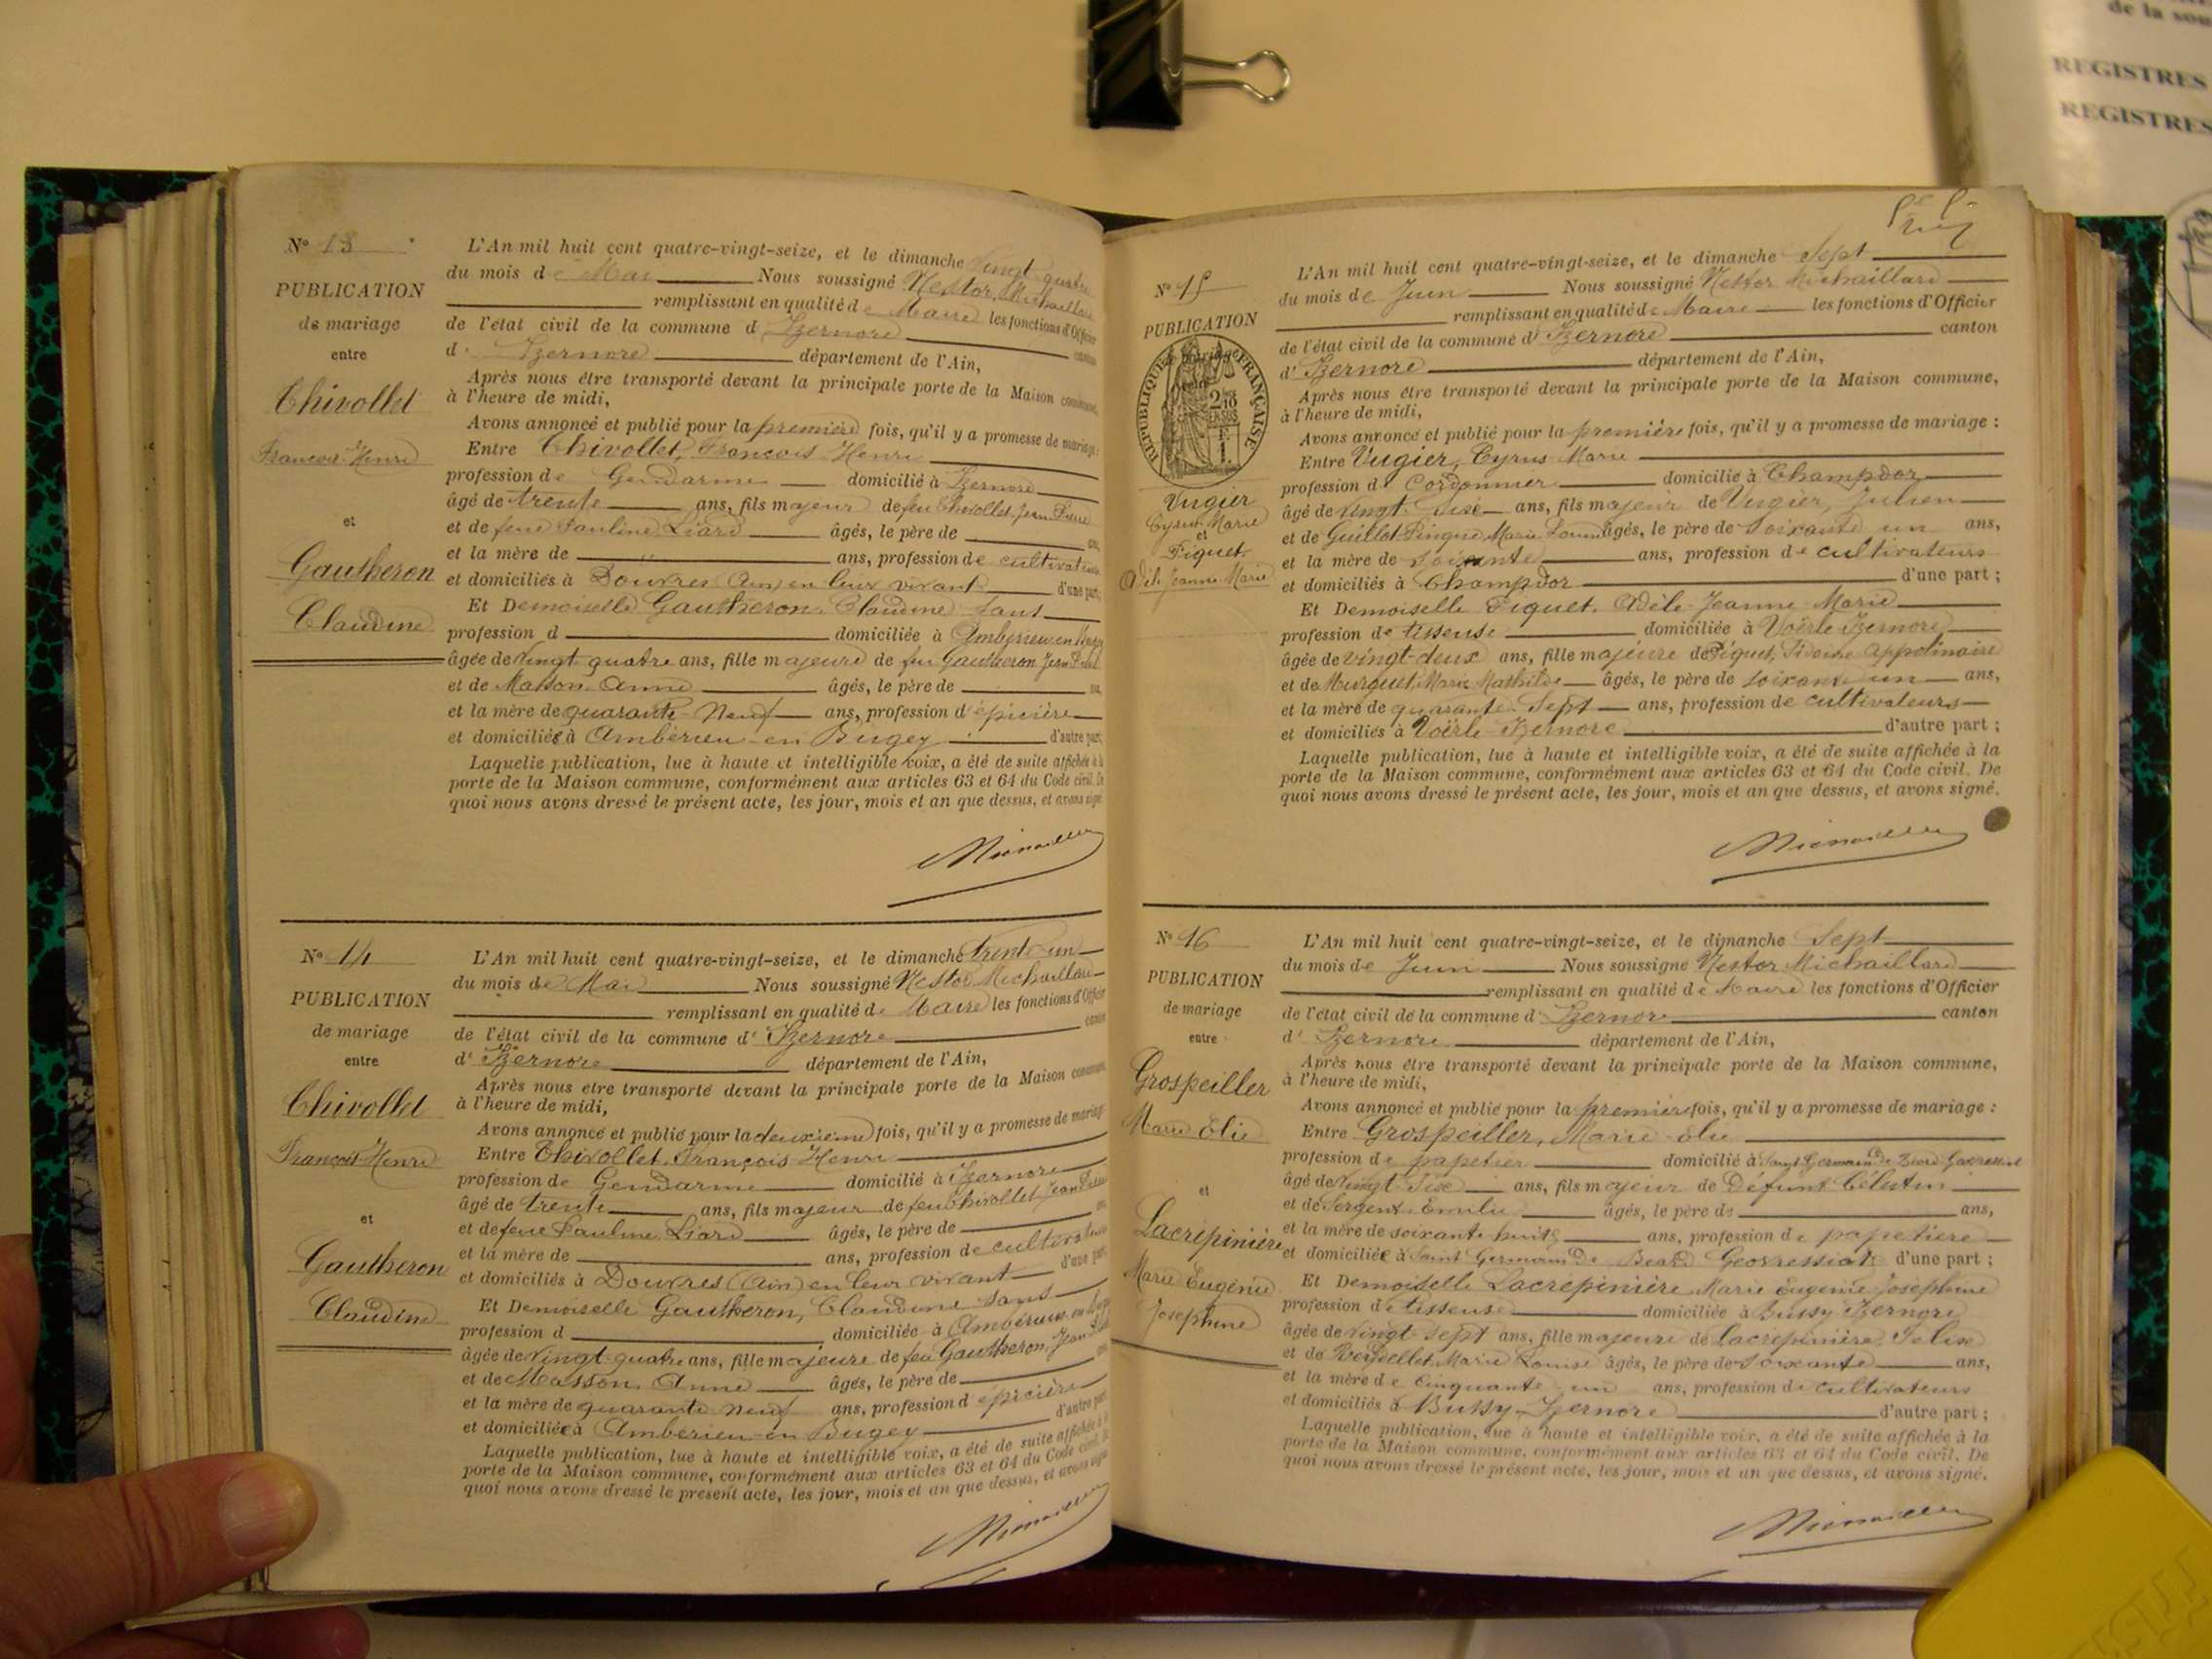 de la sou
REGISTRES
REGISTRES
N° 13
PUBLICATION
de mariage
entre
Chivollet
François Henri
et
Gautheron
Claudine
L'An mil huit cent quatre-vingt-seize, et le dimanche vingt quatre
du mois de Mai Nous soussigné Nestor Michaillard
remplissant en qualité de Maire les fonctions d'Officier
de l'état civil de la commune d Izernore canton
d' Izernore département de l'Ain,
Après nous être transporté devant la principale porte de la Maison commune,
à l'heure de midi,
Avons annoncé et publié pour la première fois, qu'il y a promesse de mariage:
Entre Chivollet, François Henri
profession de Gendarme domicilié à Izernore
âgé de trente ans, fils majeur de feu Chivollet Jean Pierre
et de feue Pauline Liard âgés, le père de ans,
et la mère de ans, profession de cultivateurs
et domiciliés à Douvres (Ain) en leur vivant d'une part,
Et Demoiselle Gautheron, Claudine sans
profession d domiciliée à Ambérieu en Bugey
âgée de Vingt quatre ans, fille majeure de feu Gautheron Jean
et de Masson Anne âgés, le père de ans,
et la mère de quarante Neuf ans, profession d'épicière
et domiciliée à Ambérieu en Bugey d'autre part,
Laquelle publication, lue à haute et intelligible voix, a été de suite affichée à la
porte de la Maison commune, conformément aux articles 63 et 64 du Code civil. De
quoi nous avons dressé le présent acte, les jour, mois et an que dessus, et avons signé.
N° 14
PUBLICATION
de mariage
entre
Chivollet
François Henri
et
Gautheron
Claudine
L'An mil huit cent quatre-vingt-seize, et le dimanche trente-un
du mois de Mai Nous soussigné Nestor Michaillard
remplissant en qualité de Maire les fonctions d'Officier
de l'état civil de la commune d' Izernore canton
d' Izernore département de l'Ain,
Après nous etre transporté devant la principale porte de la Maison commune,
à l'heure de midi,
Avons annoncé et publié pour la deuxième fois, qu'il y a promesse de mariage
Entre Chivollet, François Henri
profession de Gendarme domicilié à Izernore
âgé de trente ans, fils majeur de feu Chivollet Jean Pierre
et de feue Pauline Liard âgés, le père de ans,
et la mère de ans, profession de cultivateurs
et domiciliés à Douvres (Ain) en leur vivant d'une part,
Et Demoiselle Gautheron, Claudine sans
profession d domiciliée à Ambérieux en Bugey
âgée de Vingt quatre ans, fille majeure de feu Gautheron, Jean
et de Masson, Anne âgés, le père de ans,
et la mère de quarante neuf ans, profession d épicière
et domiciliée à Ambérieu en Bugey d'autre part,
Laquelle publication, lue à haute et intelligible voix, a été de suite affichée à la
porte de la Maison commune, conformément aux articles 63 et 64 du Code civil. De
quoi nous avons dressé le présent acte, les jour, mois et an que dessus, et avons signé
N° 15
PUBLICATION
de mariage
RÉPUBLIQUE FRANÇAISE
Vugier
Cyrus Marie
et
Piquet
Adèle Jeanne Marie
L'An mil huit cent quatre-vingt-seize, et le dimanche Sept
du mois de Juin Nous soussigné Nestor Michaillard
remplissant en qualité de Maire les fonctions d'Officier
de l'état civil de la commune d' Izernore canton
d' Izernore département de l'Ain,
Après nous être transporté devant la principale porte de la Maison commune,
à l'heure de midi,
Avons annoncé et publié pour la première fois, qu'il y a promesse de mariage :
Entre Vugier, Cyrus Marie
profession de Cordonnier domicilié à Champdor
âgé de Vingt Six ans, fils majeur de Vugier, Julien
et de Guillot Pingue, Marie âgés, le père de soixante un ans,
et la mère de soixante ans, profession de cultivateurs
et domiciliés à Champdor d'une part ;
Et Demoiselle Piquet, Adèle Jeanne Marie
profession de tisseuse domiciliée à Voërle Izernore
âgée de vingt-deux ans, fille majeure de Piquet, Sidoine Appolinaire
et de Murguet, Marie Mathilde âgés, le père de soixante un ans,
et la mère de quarante Sept ans, profession de cultivateurs
et domiciliés à Voërle Izernore d'autre part ;
Laquelle publication, lue à haute et intelligible voix, a été de suite affichée à la
porte de la Maison commune, conformément aux articles 63 et 64 du Code civil. De
quoi nous avons dressé le présent acte, les jour, mois et an que dessus, et avons signé.
N° 16
PUBLICATION
de mariage
entre
Grospeiller
Marie Elie
et
Lacrépinière
Marie Eugénie
Joséphine
L'An mil huit cent quatre-vingt-seize, et le dimanche Sept
du mois de Juin Nous soussigné Nestor Michaillard
remplissant en qualité de Maire les fonctions d'Officier
de l'état civil de la commune d' Izernore canton
d' Izernore département de l'Ain,
Après nous être transporté devant la principale porte de la Maison commune,
à l'heure de midi,
Avons annoncé et publié pour la première fois, qu'il y a promesse de mariage :
Entre Grospeiller, Marie Elie
profession de papetier domicilié à Saint Germain de Béard Géovressiat
âgé de Vingt Six ans, fils majeur de Défunt Célestin
et de Sergent Emilie âgés, le père de ans,
et la mère de soixante huit ans, profession de papetière
et domiciliée à Saint Germain de Béard Géovressiat d'une part ;
Et Demoiselle Lacrépinière Marie Eugénie Joséphine
profession de tisseuse domiciliée à Bussy Izernore
âgée de Vingt sept ans, fille majeure de Lacrépinière Félix
et de Marie Louise âgés, le père de soixante ans,
et la mère de cinquante un ans, profession de cultivateurs
et domiciliés à Bussy Izernore d'autre part ;
Laquelle publication, lue à haute et intelligible voix, a été de suite affichée à la
porte de la Maison commune, conformément aux articles 63 et 64 du Code civil. De
quoi nous avons dressé le présent acte, les jour, mois et an que dessus, et avons signé.